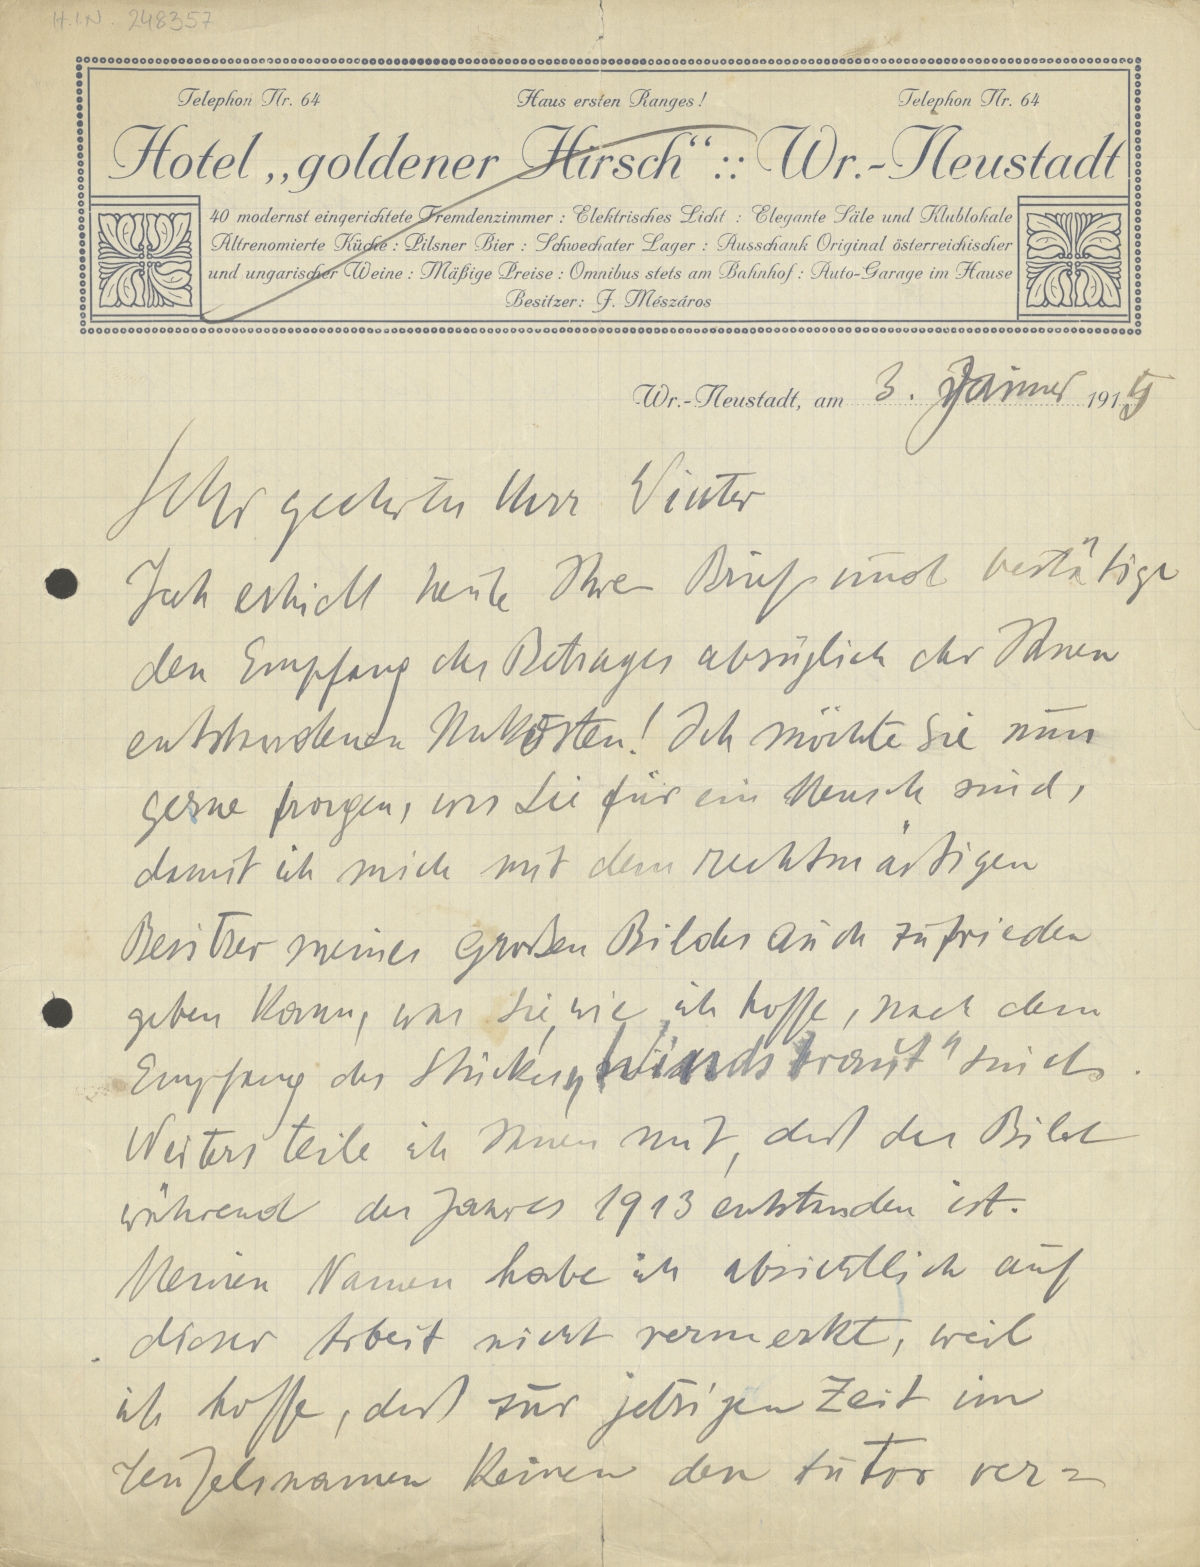 H.I.N. 248357
Telephon Nr. 64 Haus ersten Ranges! Telephon Nr. 64
Hotel „goldener Hirsch“ :: Wr.-Neustadt
40 modernst eingerichtete Fremdenzimmer : Elektrisches Licht : Elegante Säle und Klublokale
Altrenomierte Küche : Pilsner Bier : Schwechater Lager : Ausschank Original österreichischer
und ungarischer Weine : Mäßige Preise : Omnibus stets am Bahnhof : Auto-Garage im Hause
Besitzer: J. Mészáros
Wr.-Neustadt, am 3. Jänner 1915
Sehr geehrter Herr Winter
Ich erhielt heute Ihren Brief und bestätige
den Empfang des Betrages abzüglich der Ihnen
entstandenen Unkosten! Ich möchte Sie nun
gerne fragen, was Sie für ein Mensch sind,
damit ich mich mit dem rechtmäßigen
Besitzer meines großen Bildes auch zufrieden
geben kann, was Sie, wie ich hoffe, nach dem
Empfang des Stückes „Windsbraut“ sind.
Weiters teile ich Ihnen mit, daß das Bild
während des Jahres 1913 entstanden ist.
Meinen Namen habe ich absichtlich auf
dieser Arbeit nicht vermerkt, weil
ich hoffe, daß zur jetzigen Zeit im
Teufelsnamen keinen den Autor ver=